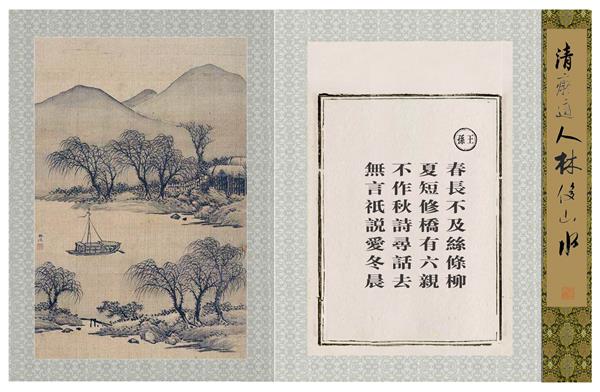 清道人林山水
王孫
春長不及絲條柳
夏短修橋有六親
不作秋詩尋話去
無言祇説愛冬晨